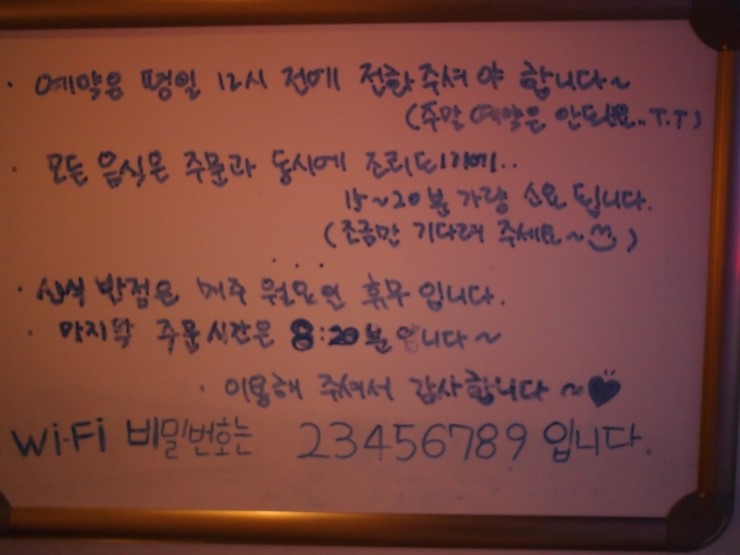 · 예약은 평일 12시 전에 전화주셔야 합니다~
(주말 예약은 안되요..T.T)
· 모든 음식은 주문과 동시에 조리되기에..
15~20분 가량 소요 됩니다.
(조금만 기다려 주세요~)
· 반점은 매주 월요일 휴무 입니다.
· 마지막 주문시간은 8:20분입니다~
· 이용해 주셔서 감사합니다~♥
Wi-Fi 비밀번호는 23456789 입니다.